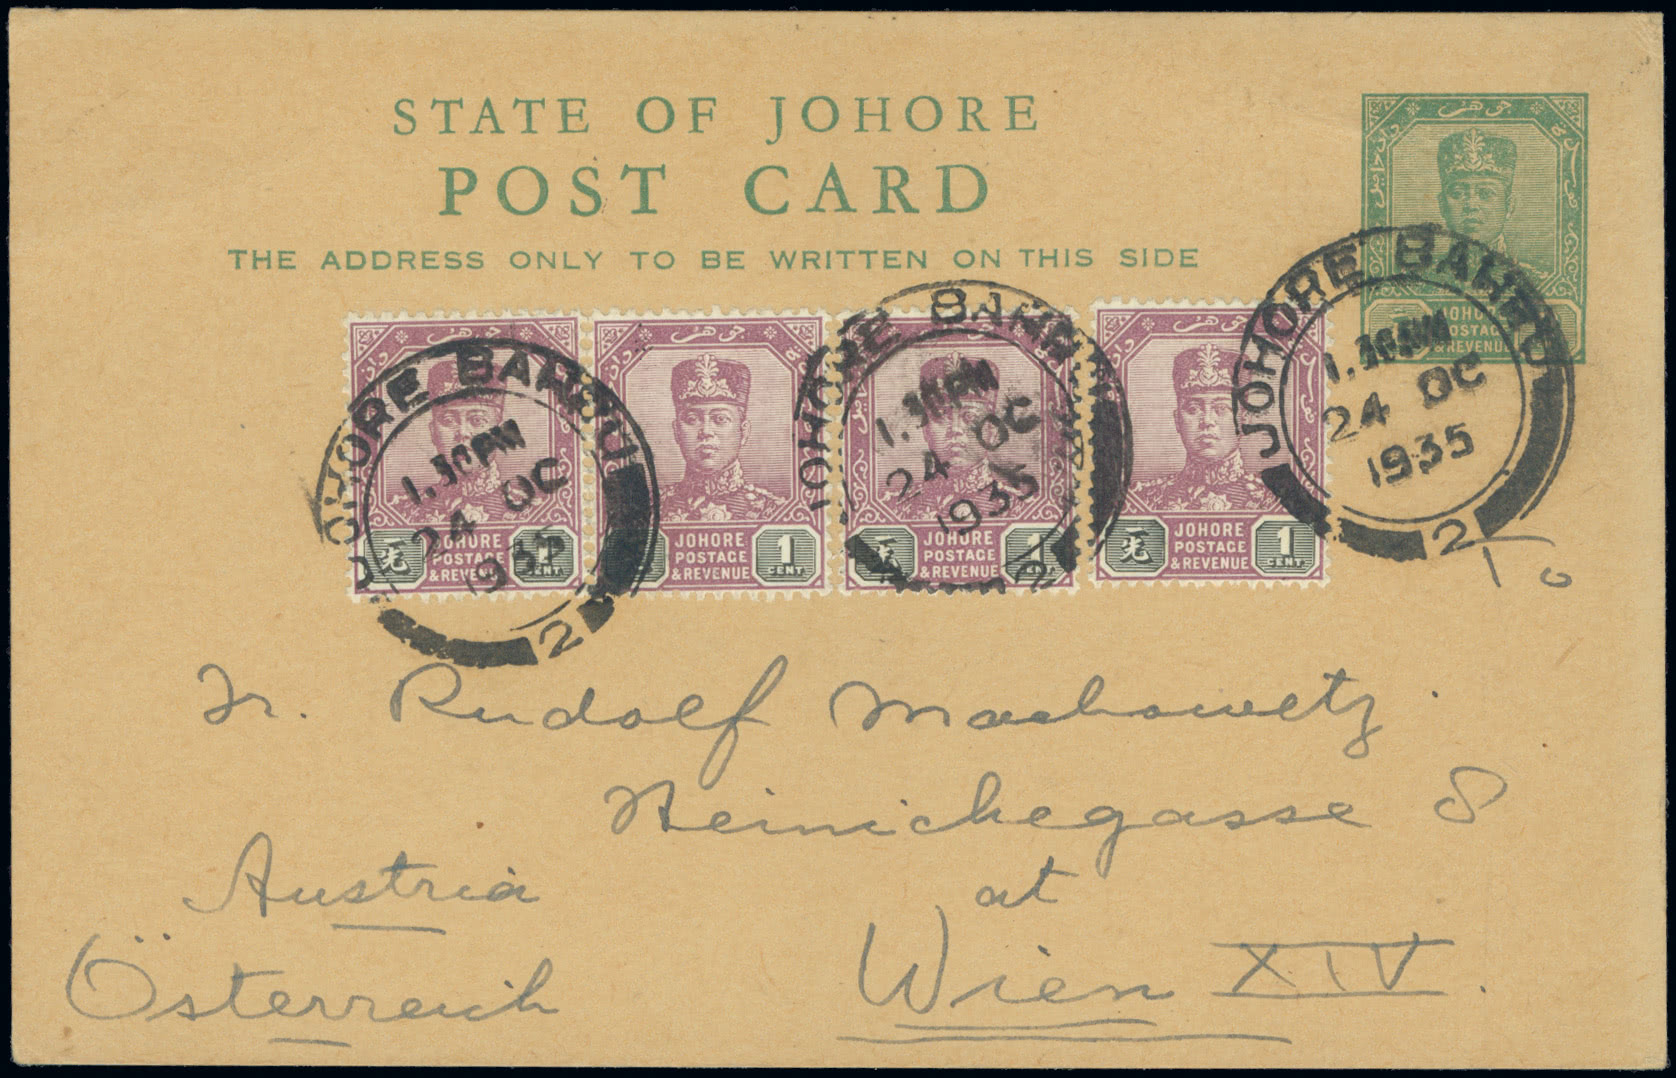 STATE OF JOHORE
POST CARD
THE ADDRESS ONLY TO BE WRITTEN ON THIS SIDE
JOHORE
POSTAGE
& REVENUE
JOHORE BAHRU
1.30PM
24 OC
1935
2
JOHORE
POSTAGE
& REVENUE
CENT.
JOHORE BAHRU
1.30PM
24 OC
1935
2
JOHORE
POSTAGE
& REVENUE
1
CENT.
JOHORE
POSTAGE
& REVENUE
1
JOHORE BAHRU
1.30PM
24 OC
1935
2
JOHORE
POSTAGE
& REVENUE
1
CENT.
To
Rudolf Machowetz
Heinichegasse 8
Austria at
Österreich Wien XIV.